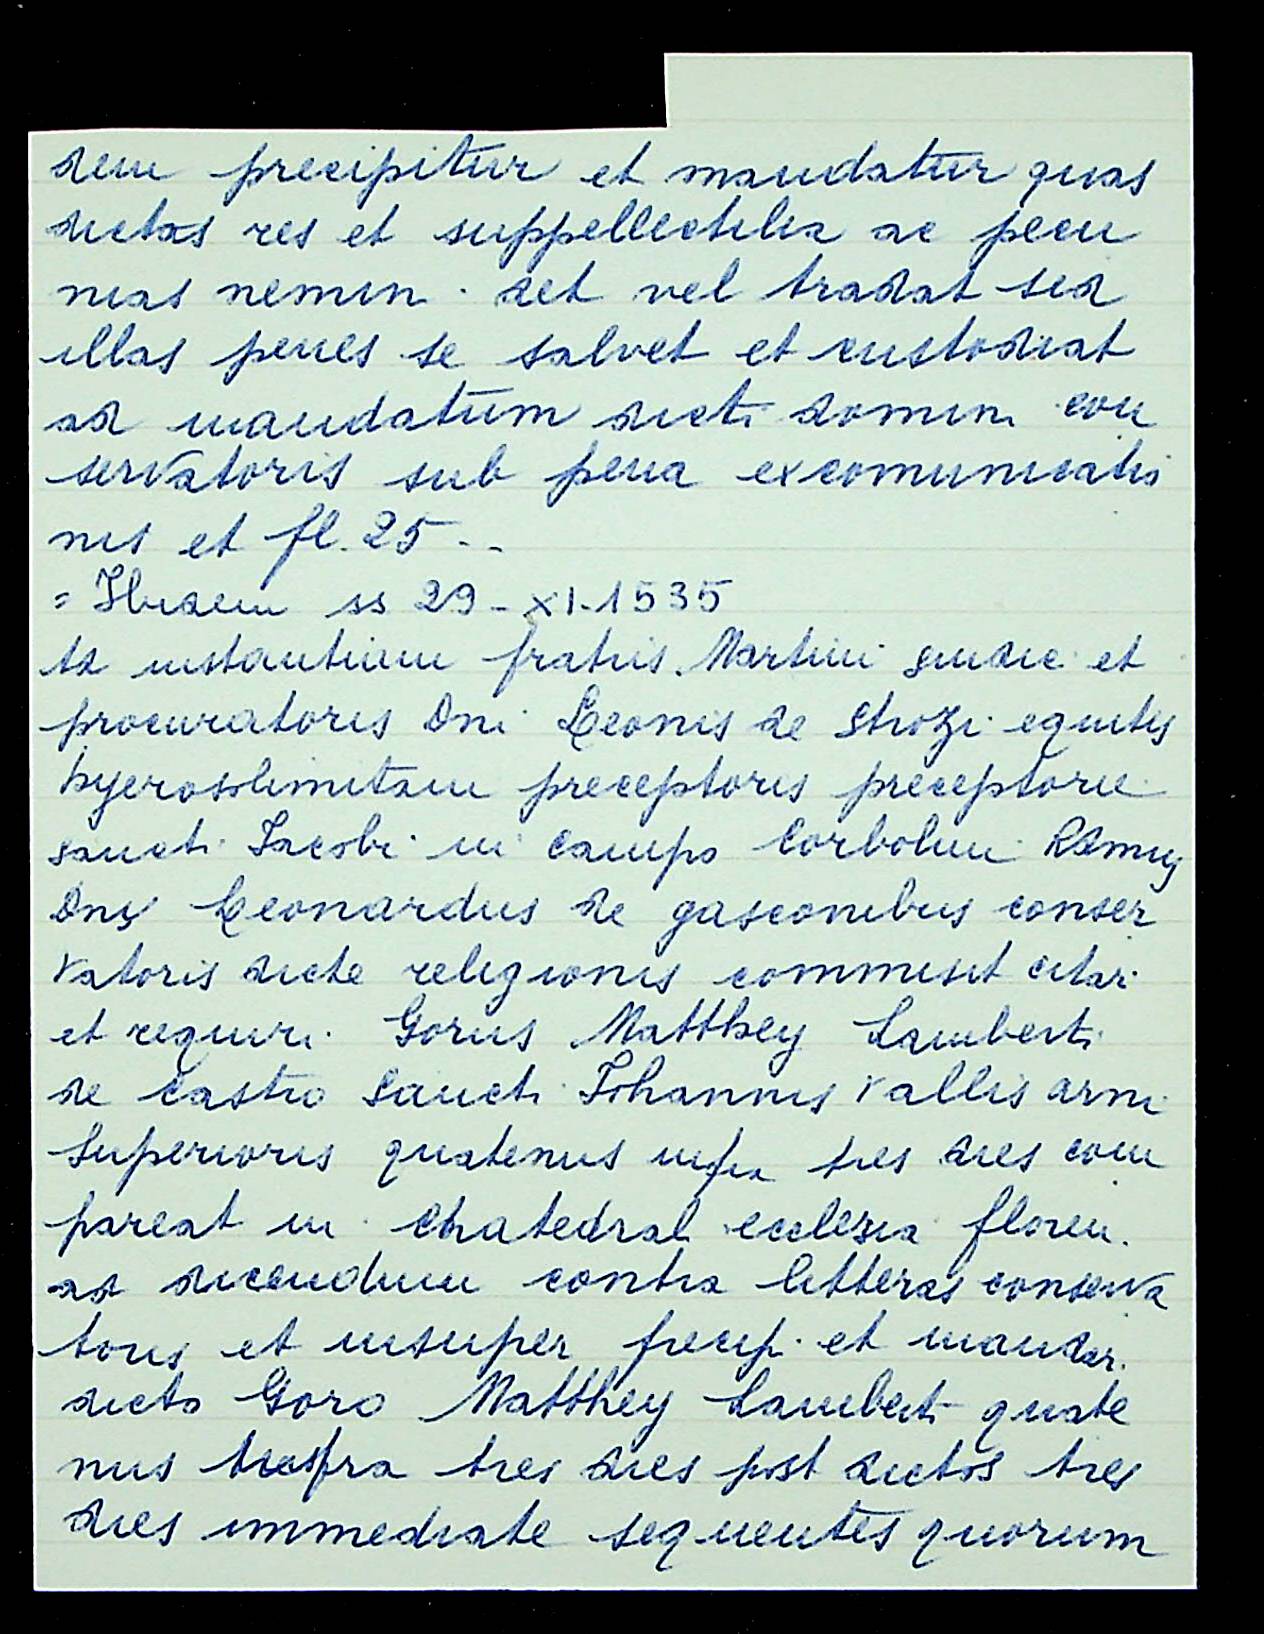 dem precipitur et mandatur quas
dictas res et suppellectilia ac pecu
nias nemini det vel tradat sed
illas penes se salvet et custodiat
ad mandatum dicti domini con
servatoris sub pena excomunicatio
nis et fl. 25 ..
= Ibidem ss 29 - XI - 1535
Ad instantiam fratris Martini sindic et
procuratoris Dni Leonis de Strozi equitis
hyerosolimitani preceptoris preceptorie
sancti Jacobi in Campo Corbolini Rdmus
Dns Leonardus de gasconibus conser
vatoris dicte religionis commisit citari
et requiri Gorus Matthey Lamberti
de Castro Sancti Johannis Vallis arni
Superioris quatenus infra tres dies com
pareat in Chatedrali ecclesia floren.
ad dicendum contra litteras conserva
toris et insuper precip. et mandar.
dicto Goro Matthey Lamberti quate
nus tres dies post dictos tres
dies immediate sequentes quorum